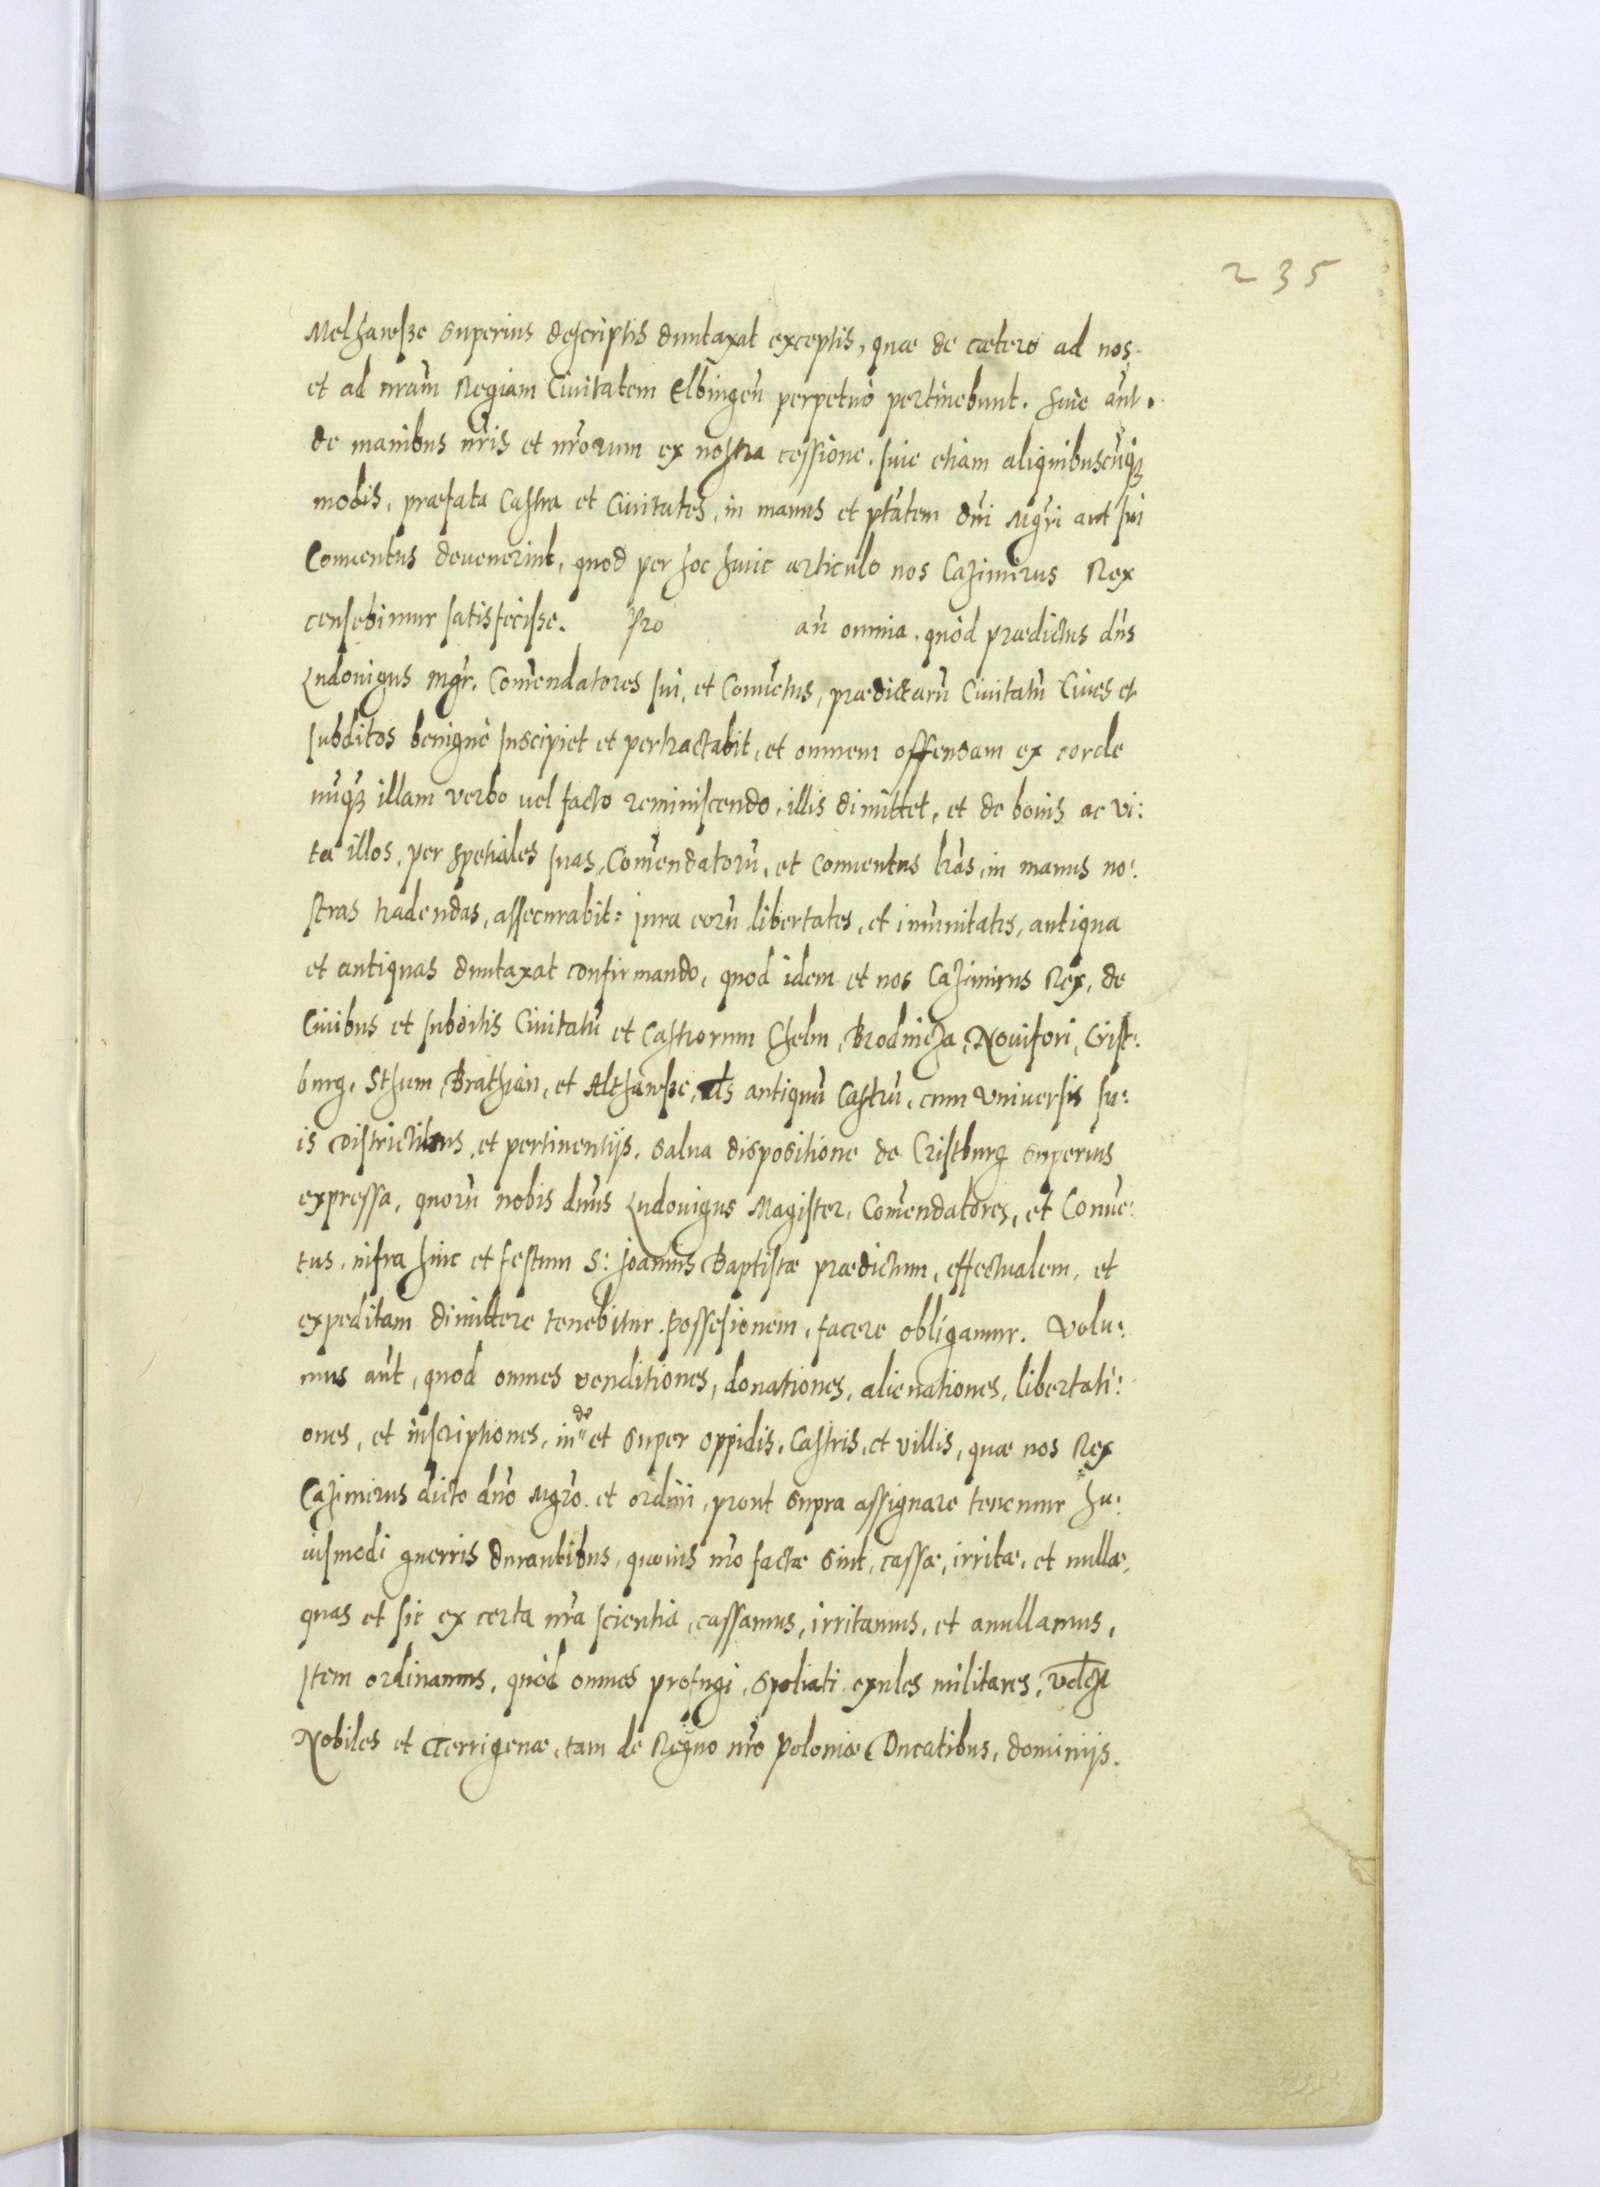 235
Melhawsze superius descriptis duntaxat exceptis, quæ de cætero ad nos
et ad nram Regiam Civitatem Elbingeñ perpetuò pertinebunt. sive aut.
de manibus nris et nrorum ex nostra cessione, sive etiam aliquibuscuq3
modis, præfata Castra et Civitates, in manus et ptatem dni Mgri aut sui
Conventus devenerint, quod per hoc huic articulo nos Cazimirus Rex
censebimur satisfecisse. Pro añ omnia, quòd prædictus dns
Ludovigus Mgr. Comendatores sui, et Conuetus, prædictarũ Civitatũ Cives et
subditos benignè suscipiet et pertractabit, et omnem offensam ex corde
nuq3 illam verbo vel facto reminiscendo, illis dimittet, et de bonis ac vi:
ta illos, per spetiales suas, Comendatorũ, et conventus lras, in manus no:
stras tradendas, assecurabit: jura eorũ libertates, et imunitates, antiqua
et antiquas duntaxat confirmando, quod idem et nos Cazimirus Rex, de
Civibus et subditis Civitatũ et Castrorum Chelm, Brodnicza, Novifori, Crist:
burg, Sthum, Brathian, et Althawsze, als antiquũ Castrũ, cum universis su:
is Districtibus, et pertinentijs, salva dispositione de Cristburg superius
expressa, quorũ nobis dnus Ludovigus Magister, Comendatores, et Conue:
tus, infra hinc et festum S: Joannis Baptistæ prædictum, effectualem, et
expeditam dimittere tenebitur possesionem, facere obligamur. Volu:
mus aut, quod omnes venditiones, donationes, alienationes, libertati:
ones, et inscriptiones, in de et super oppidis, Castris, et villis, quæ nos Rex
Cazimirus dicto dno Mgro et ordini, prout supra assignare tenemur hu:
iusmodi guerris durantibus, quovis mo factæ sint, cassæ, irritæ, et nullæ,
quas et sic ex certa nra scientia, cassamus, irritamus, et anullamus,
Item ordinamus, quòd omnes profugi, spoliati exules militares,
Nobiles et Terrigenæ, tam de Regno nro Poloniæ Ducatibus, dominijs.